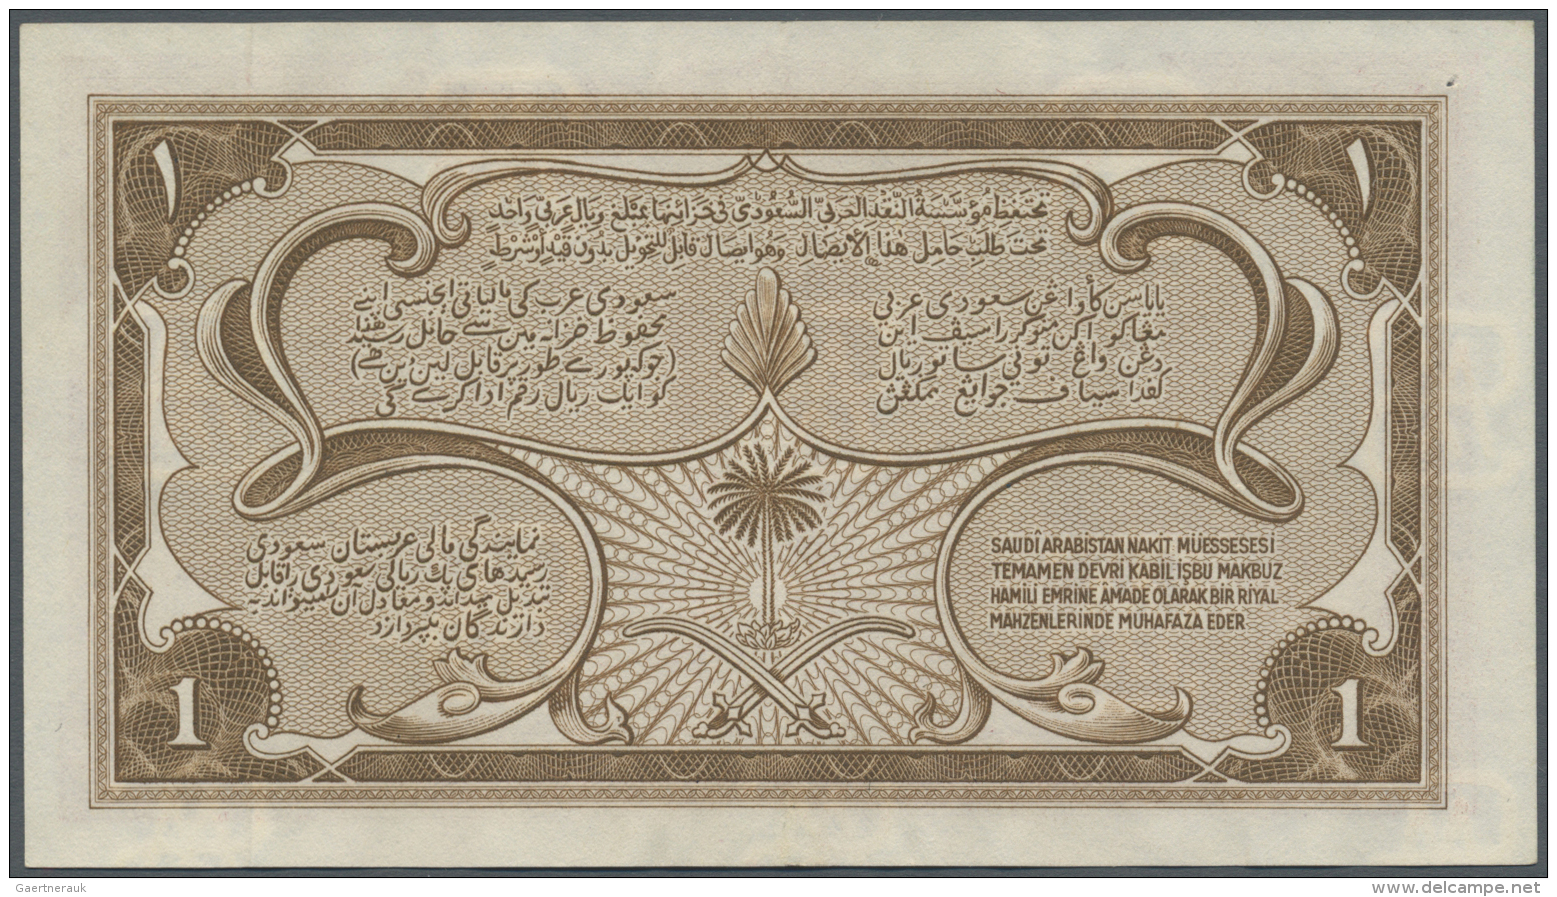 ١
١
تحتفظ مؤسسة النقد العربي السعودي في خزائنها بمبلغ ريال عربي واحد
تحت طلب حامل هذا الإيصال وهو ايصال قابل للتحويل بدون قيد أو شرط
يايسن كأواڠن سعودي عربي
دڠن واڠ توني ساتو ريال
سعودي عرب کی مالیاتی ایجنسی اپنے
محفوظ خزانہ میں سے حامل رسید ھذا
(جو کہ پورے طور پر قابل لین دین ہے)
کو ایک ریال رقم ادا کرے گی
نمایندگی مالی عربستان سعودی
رسیدهای یك ریالی سعودی را قابل
دارندگان بپردازد
SAUDÎ ARABİSTAN NAKİT MÜESSESESİ
TEMAMEN DEVRİ KABİL İŞBU MAKBUZ
HAMİLİ EMRİNE AMADE OLARAK BİR RİYAL
MAHZENLERİNDE MUHAFAZA EDER
1
1
Gaertnerauk
www.delcampe.net